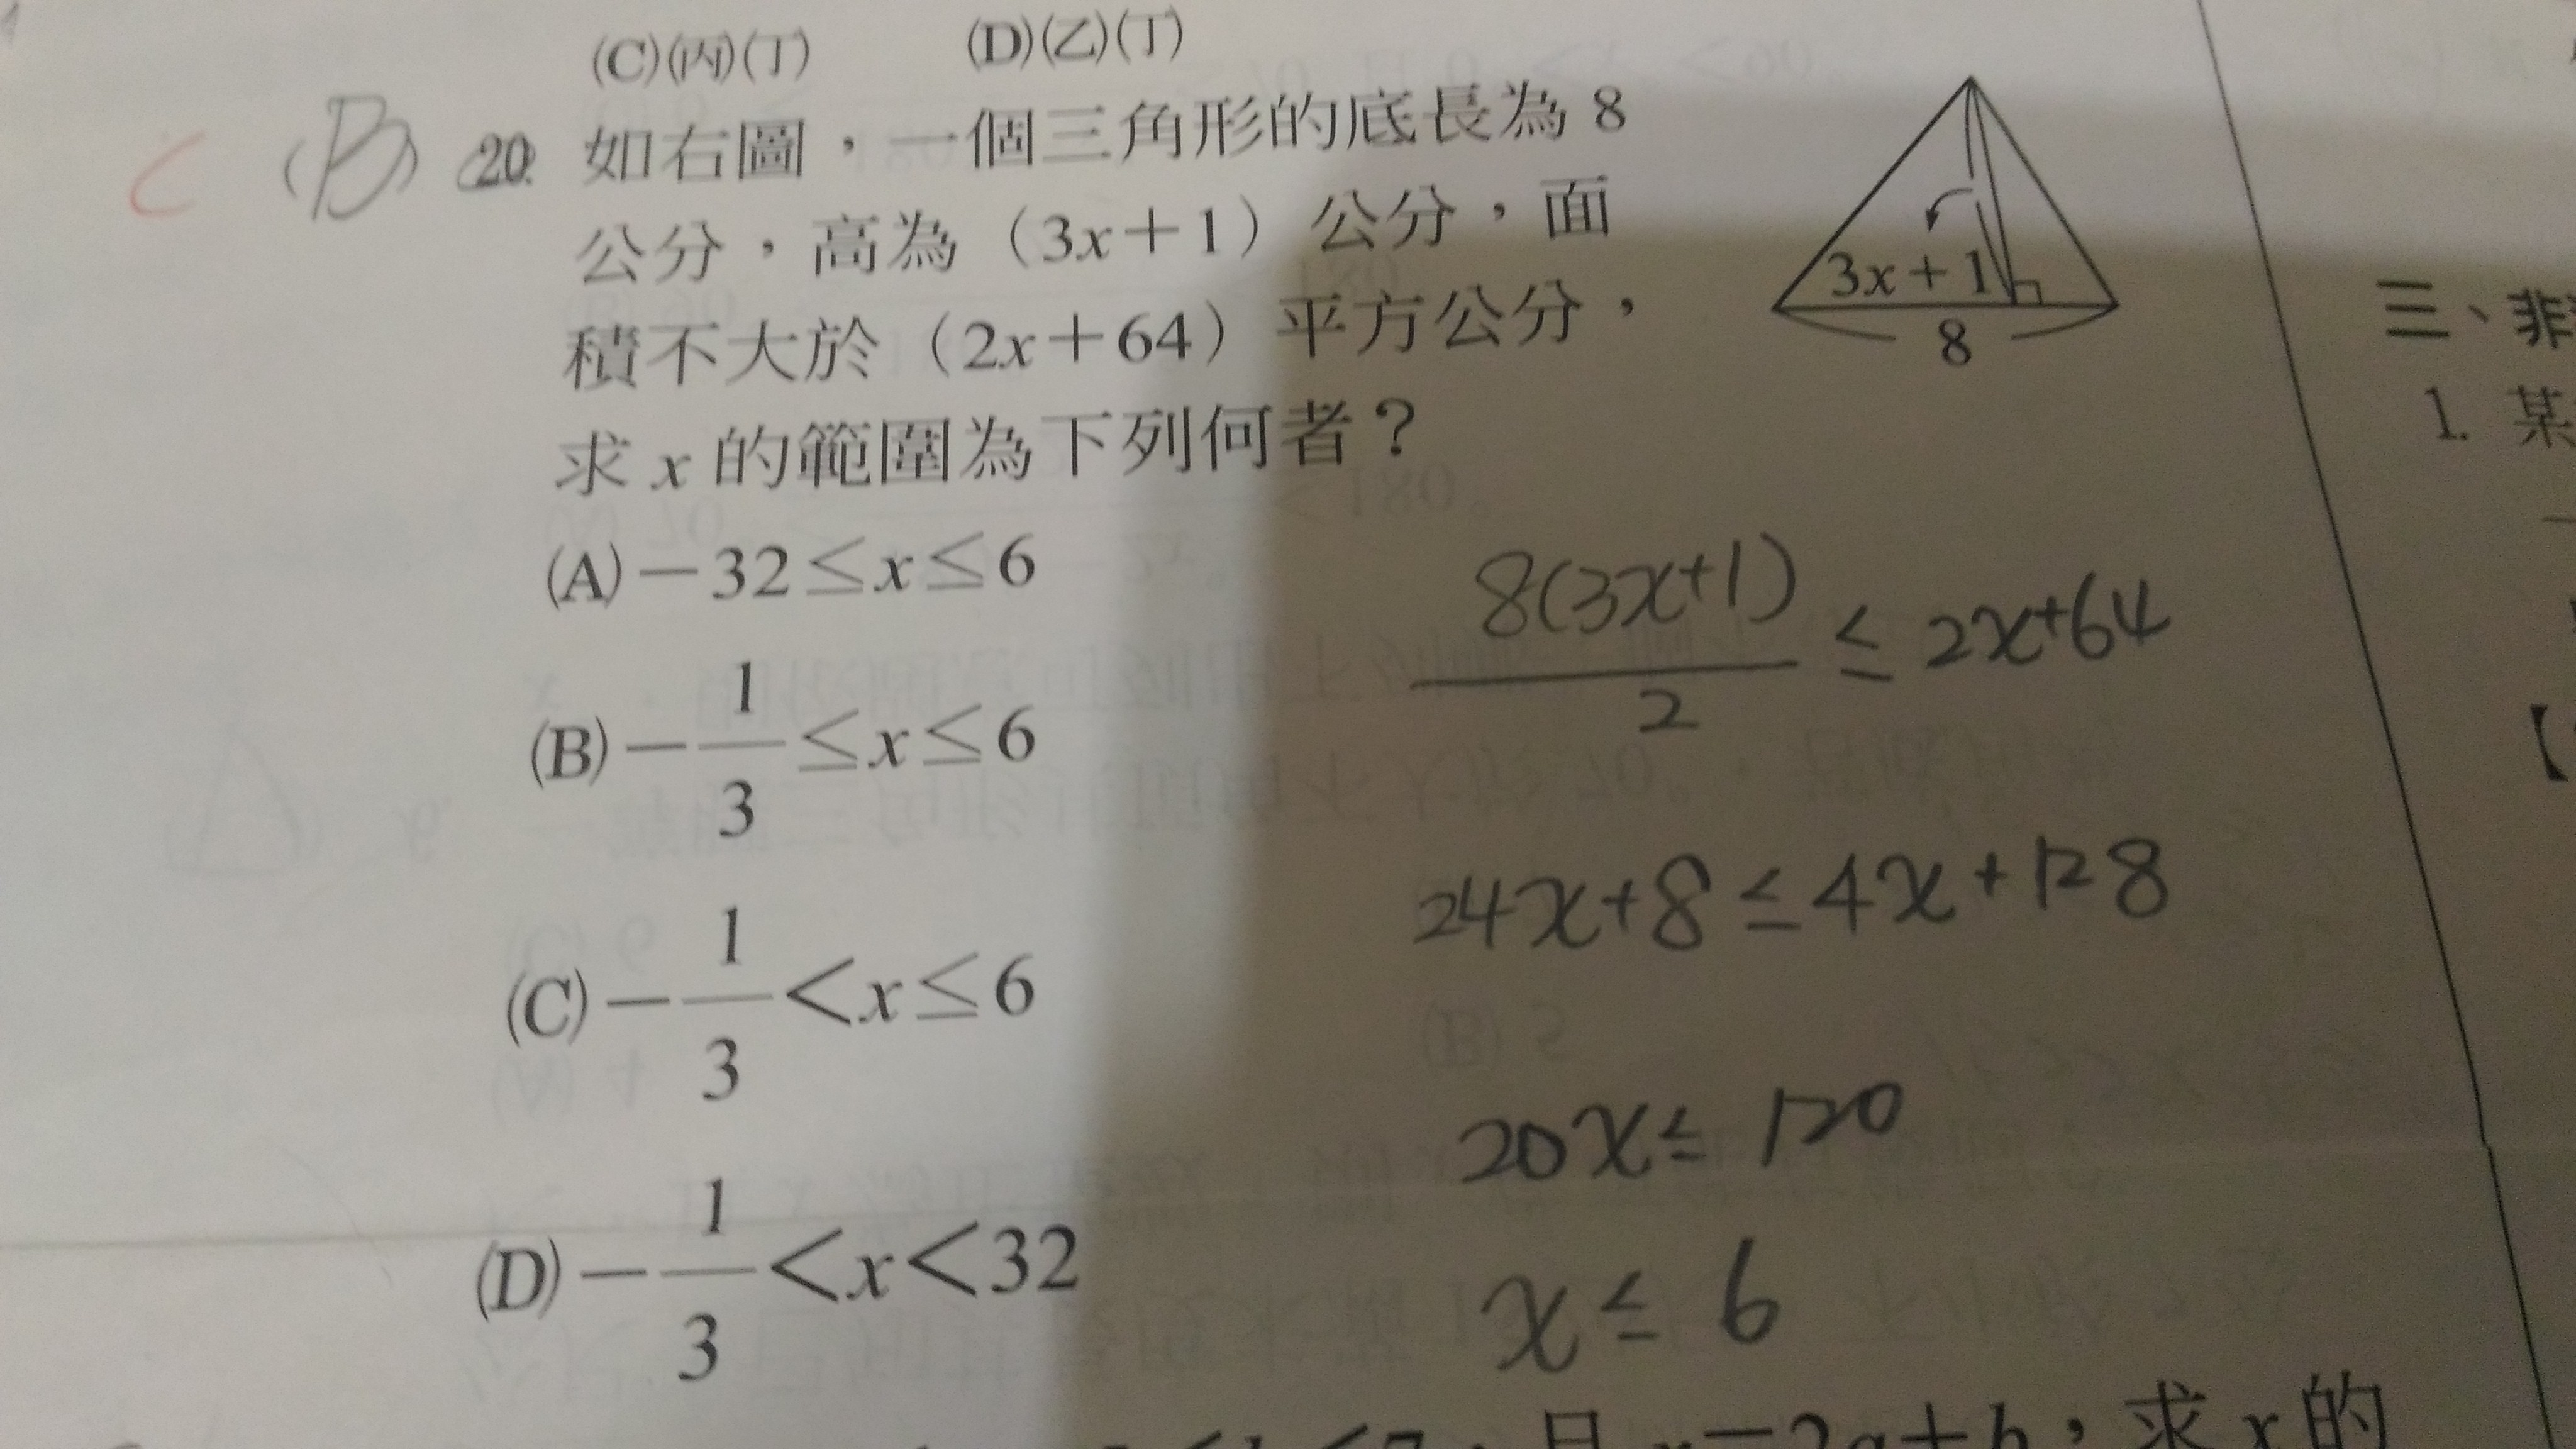 (C)(丙)(丁) (D)(乙)(丁)
C (B) 20. 如右圖，一個三角形的底長為 8
公分，高為（3x＋1）公分，面
積不大於（2x＋64）平方公分，
求 x 的範圍為下列何者？
3x＋1
8
(A)－32≤x≤6
(B)－1/3≤x≤6
(C)－1/3＜x≤6
(D)－1/3＜x＜32
8(3x+1)/2 ≤ 2x+64
24x+8≤4x+128
20x≤120
x≤6
且 x＝2a＋b，求 x 的
三、非
1. 某